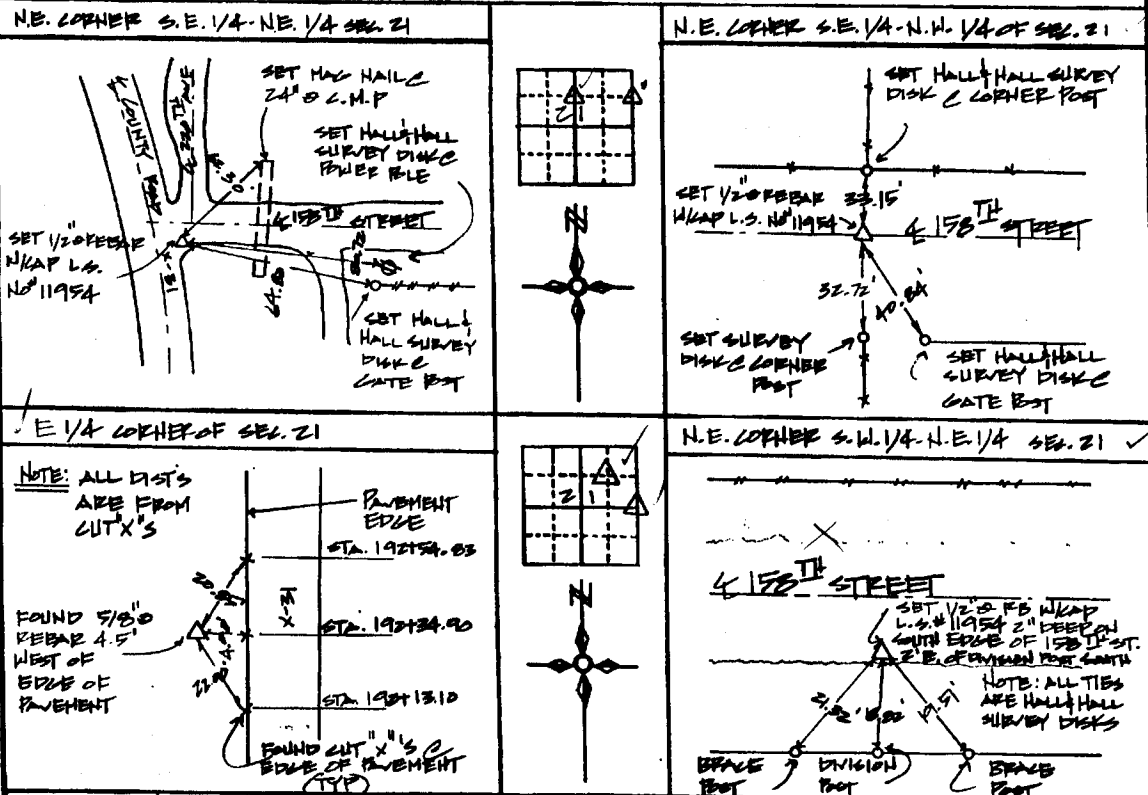 N.E. CORNER S.E. 1/4 - N.E. 1/4 SEC. 21
SET MAG NAIL @
24" Ø C.M.P
SET HALL & HALL
SURVEY DISK @
POWER POLE
℄ COUNTY ROAD
℄ 220TH AVE
℄ 158TH STREET
SET 1/2" Ø REBAR
W/CAP L.S.
Nº 11954
X-31
64.80
SET HALL &
HALL SURVEY
DISK @
GATE POST
N
21
N.E. CORNER S.E. 1/4 - N.W. 1/4 OF SEC. 21
SET HALL & HALL SURVEY
DISK @ CORNER POST
SET 1/2" Ø REBAR
W/CAP L.S. Nº 11954
33.15'
℄ 158TH STREET
32.72'
40.84'
SET SURVEY
DISK @ CORNER
POST
SET HALL & HALL
SURVEY DISK @
GATE POST
E 1/4 CORNER OF SEC. 21
NOTE: ALL DIST'S
ARE FROM
CUT "X"'S
PAVEMENT
EDGE
STA. 192+54.83
X-31
STA. 192+34.90
STA. 192+13.10
FOUND 5/8" Ø
REBAR 4.5'
WEST OF
EDGE OF
PAVEMENT
FOUND CUT "X"'S @
EDGE OF PAVEMENT
(TYP)
21
N
N.E. CORNER S.W. 1/4 - N.E. 1/4 SEC. 21
℄ 158TH STREET
SET 1/2" Ø RB W/CAP
L.S. # 11954 2" DEEP ON
SOUTH EDGE OF 158TH ST.
2' E. OF DIVISION POST SOUTH
NOTE: ALL TIES
ARE HALL & HALL
SURVEY DISKS
19.51'
BRACE
POST
DIVISION
POST
BRACE
POST